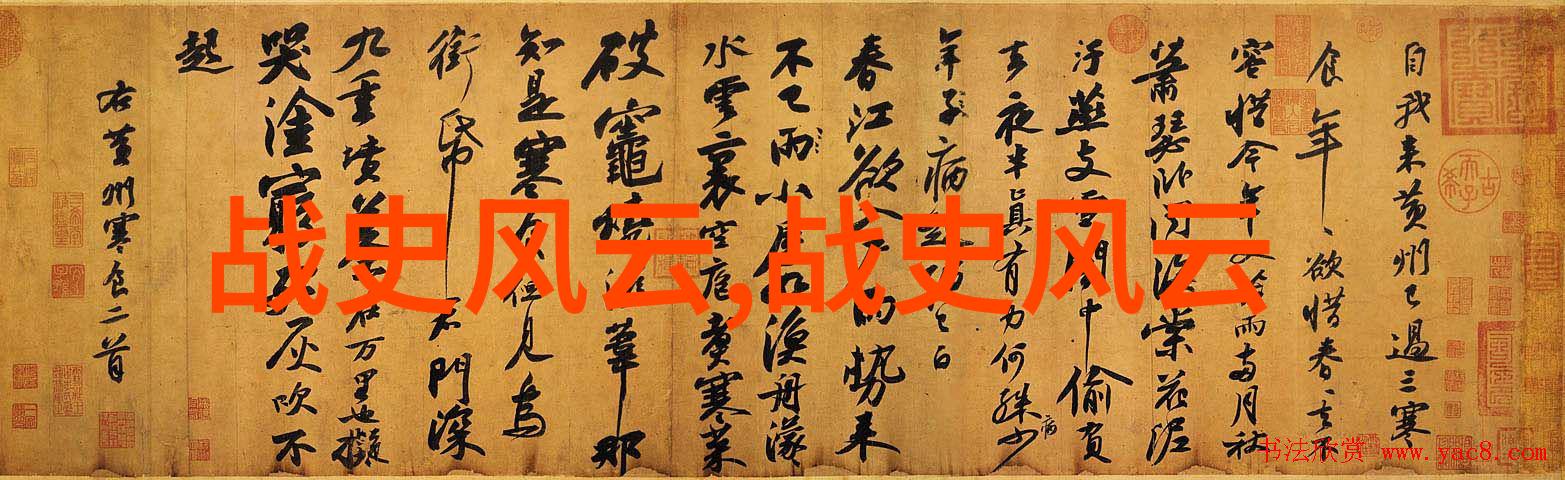 自我来黄州已過三寒
食年〻欲惜春〻去不
容惜今年又苦雨兩月秋
蕭瑟卧聞海棠花泥
汙燕支雪闇中偷負
去夜半真有力何殊少
病
年子病起已白
春江欲入户雨勢来
不已雨小屋如漁舟濛
水雲裏空庖煮寒菜
破竈燒濕葦那
知是寒食但見烏
銜帋君門深
九重墳墓在万里也擬
哭塗窮死灰吹不
起
右黄州寒食二首
战史风云,战史风云
书法欣赏 www.yac8.com